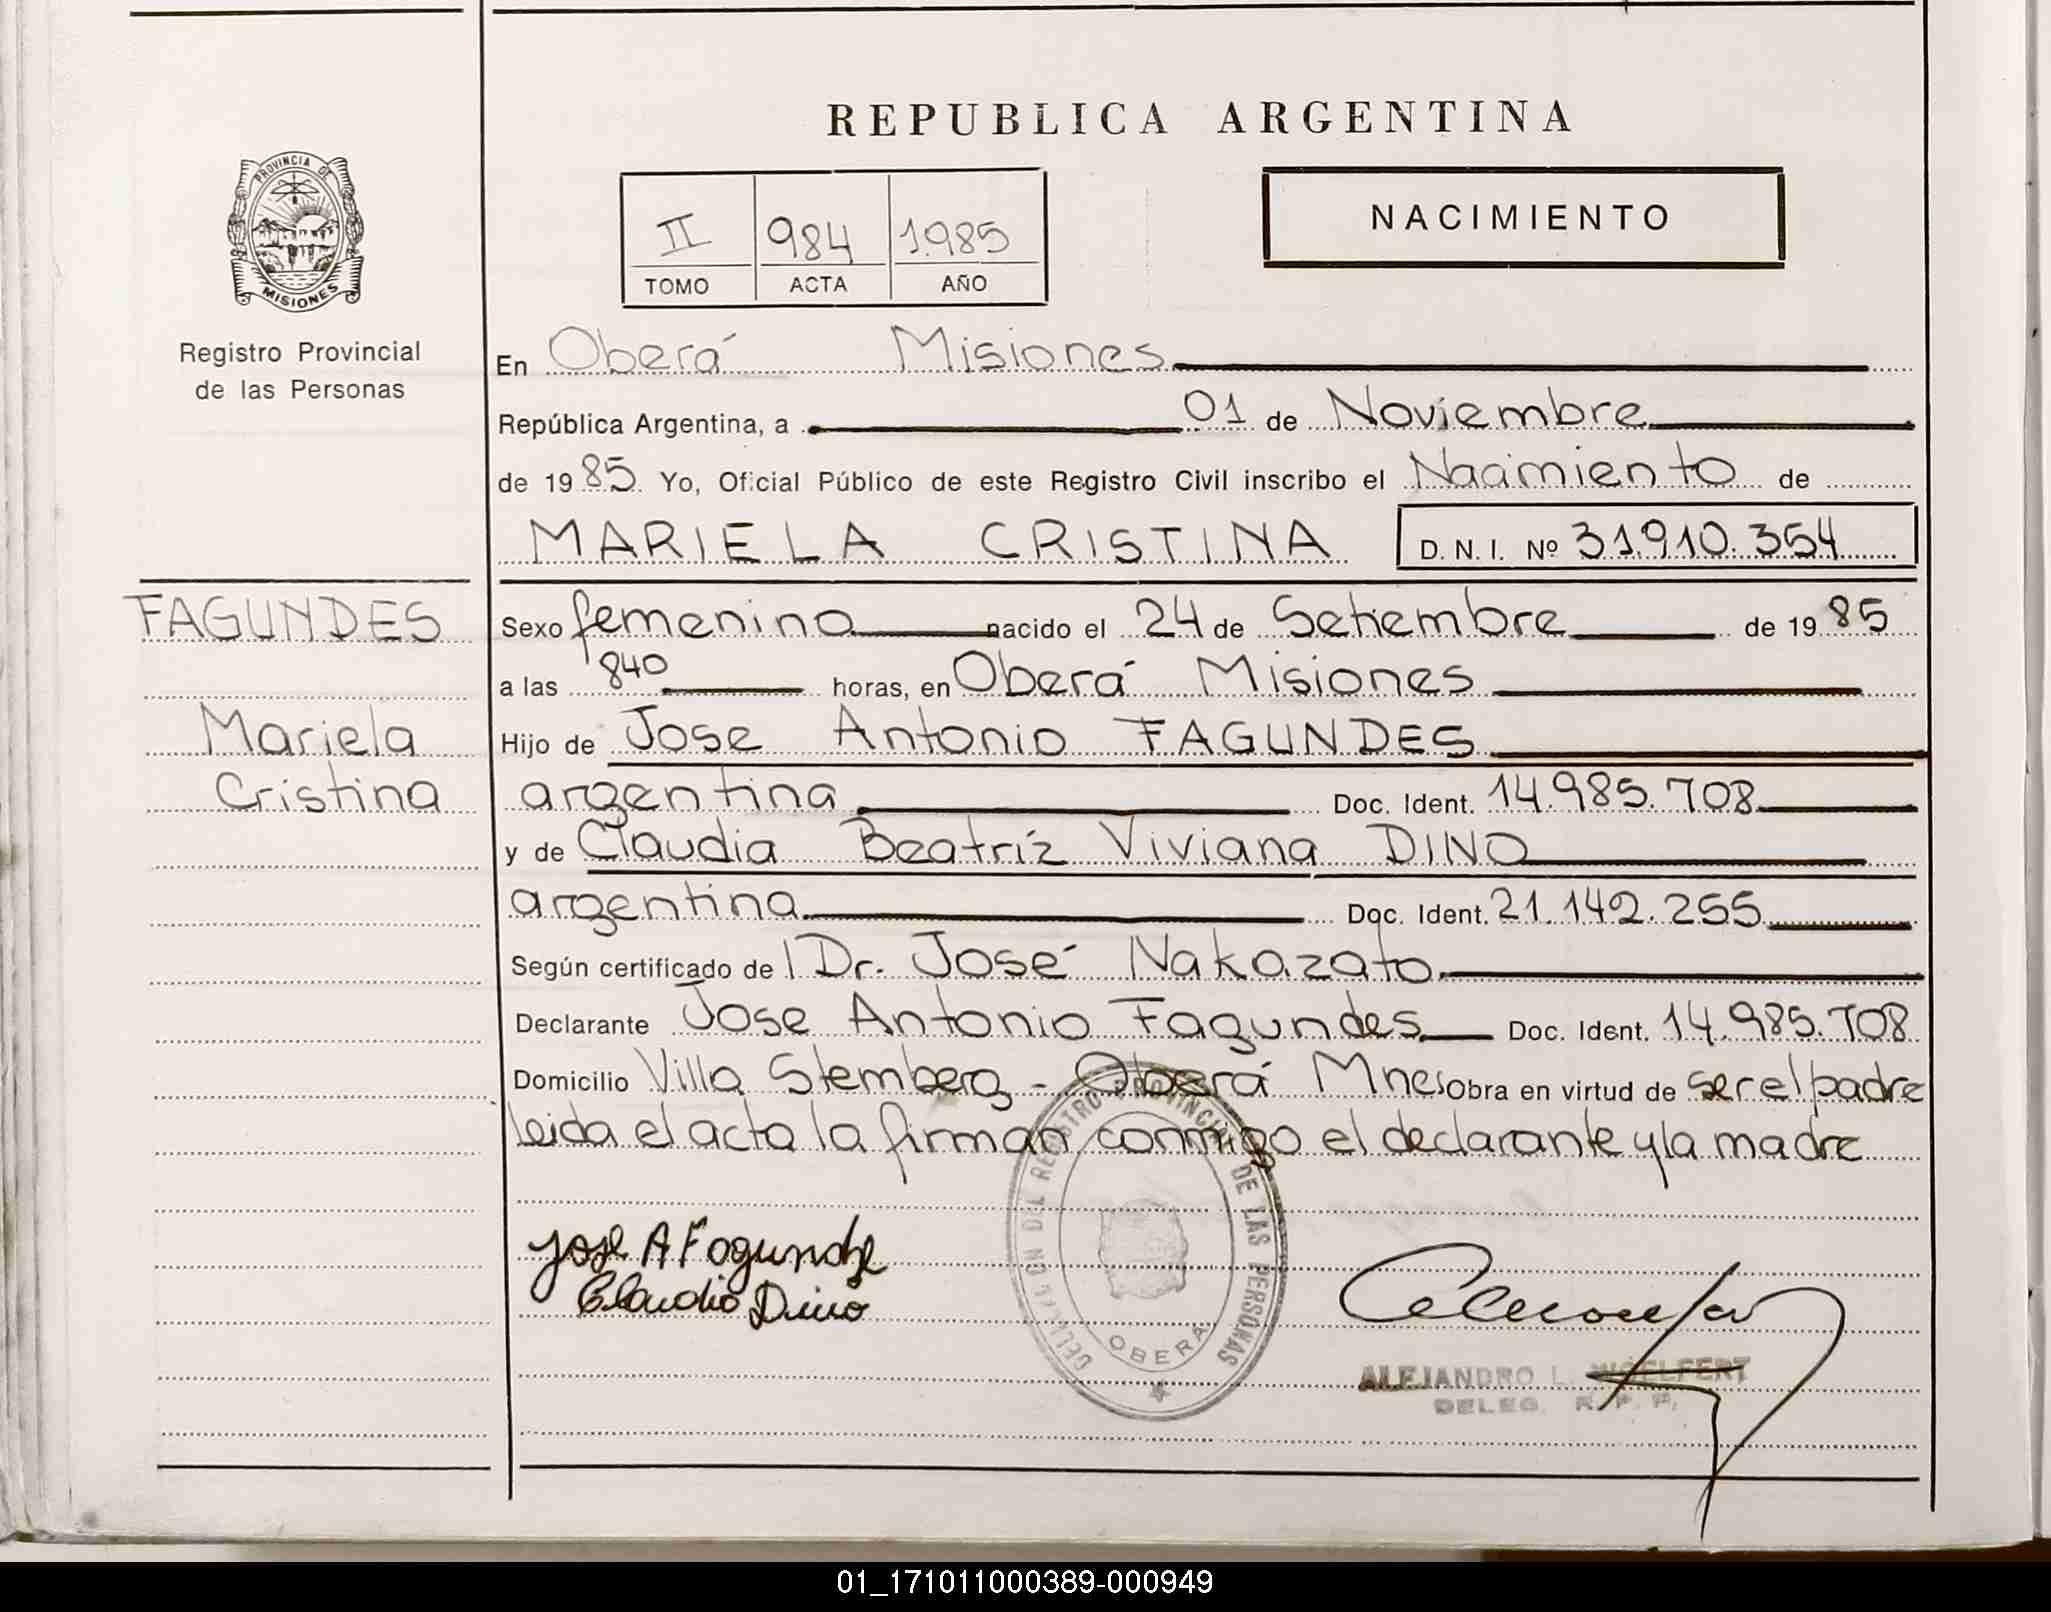 REPUBLICA ARGENTINA
PROVINCIA DE
MISIONES
Registro Provincial
de las Personas
II 984 1985
TOMO ACTA AÑO
NACIMIENTO
En Oberá Misiones
República Argentina, a 01 de Noviembre
de 1985 Yo, Oficial Público de este Registro Civil inscribo el Nacimiento de
MARIELA CRISTINA D. N. I. Nº 31.910.354
FAGUNDES
Mariela
Cristina
Sexo femenino nacido el 24 de Setiembre de 1985
a las 840 horas, en Oberá Misiones
Hijo de Jose Antonio FAGUNDES
argentina Doc. Ident. 14.985.708
y de Claudia Beatríz Viviana DINO
argentina Doc. Ident. 21.142.255
Según certificado de l Dr. José Nakazato
Declarante Jose Antonio Fagundes Doc. Ident. 14.985.708
Domicilio Villa Stemberg - Oberá Mnes obra en virtud de ser el padre
leida el acta la firman conmigo el declarante y la madre
Jose A Fagundez
Claudia Dino
DELEGACION DEL REGISTRO PROVINCIAL DE LAS PERSONAS
OBERA
ALEJANDRO L.
DELEG. R. P. P.
01_171011000389-000949